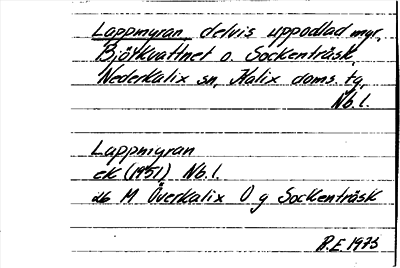 Lappmyran, delvis uppodlad myr,
Björkvattnet o. Sockenträsk,
Nederkalix sn, Kalix doms. tg,
Nb. l.
Lappmyran
ek (1951) Nb. l.
db M Överkalix O g Sockenträsk
R.E. 1973